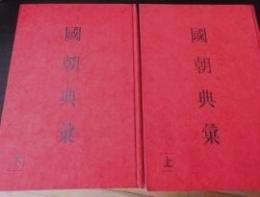 國朝典彙
上
國朝典彙
下